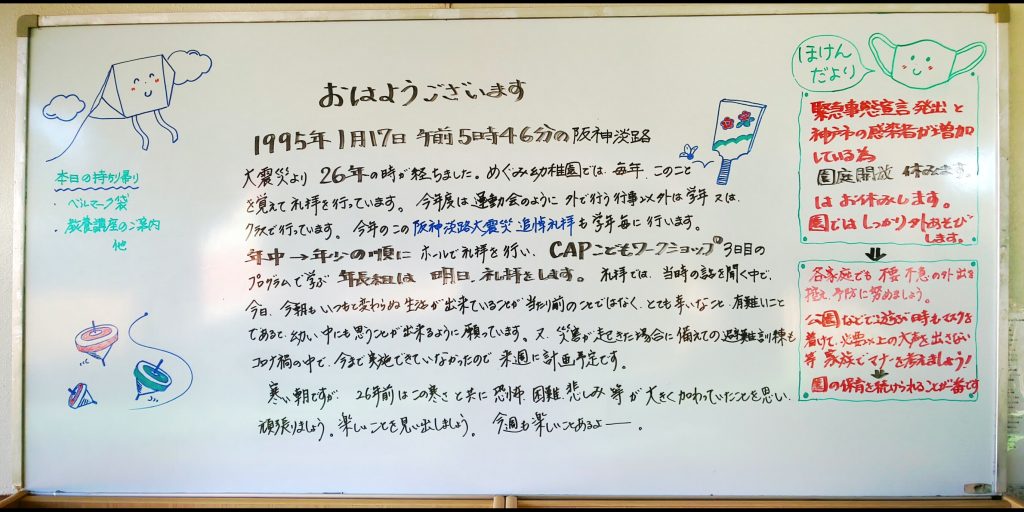 おはようございます
1995年1月17日 午前5時46分の阪神淡路
大震災より 26年の時が経ちました。めぐみ幼稚園では、毎年、このこと
を覚えて礼拝を行っています。今年度は運動会のように外で行う行事以外は学年又は、
クラスで行っています。今年のこの阪神淡路大震災追悼礼拝も学年毎に行います。
年中→年少の順に ホールで礼拝を行い、CAPこどもワークショップ 3日目の
プログラムで学ぶ 年長組は 明日、礼拝をします。 礼拝では、当時の話を聞く中で、
今日、今朝もいつもと変わらぬ生活が出来ていることが当たり前のことではなく、とても幸いなこと、有難いこと
であると幼い中にも思うことが出来るように願っています。又、災害が起きた場合に備えての避難訓練も
コロナ禍の中で、今まで実施できていなかったので 来週に計画予定です。
寒い朝ですが、26年前はこの寒さと共に 恐怖、困難、悲しみ等が大きく加わっていたことを思い、
頑張りましょう。楽しいことを見い出しましょう。 今週も楽しいことあるよー。
本日の持ち帰り
・ベルマーク袋
・教養講座のご案内
他
ほけん
だより
緊急事態宣言発出と
神戸の感染者が増加
している為
園庭開放 休みます。
はお休みします。
園ではしっかり外あそび
します。
各家庭でも 不要不急の外出を
控え、予防に努めましょう。
公園などで遊ぶ時もマスクを
着けて、必要以上の大声を出さない
等 家族でマナーを考えましょう!
園の保育を続けられることが一番です